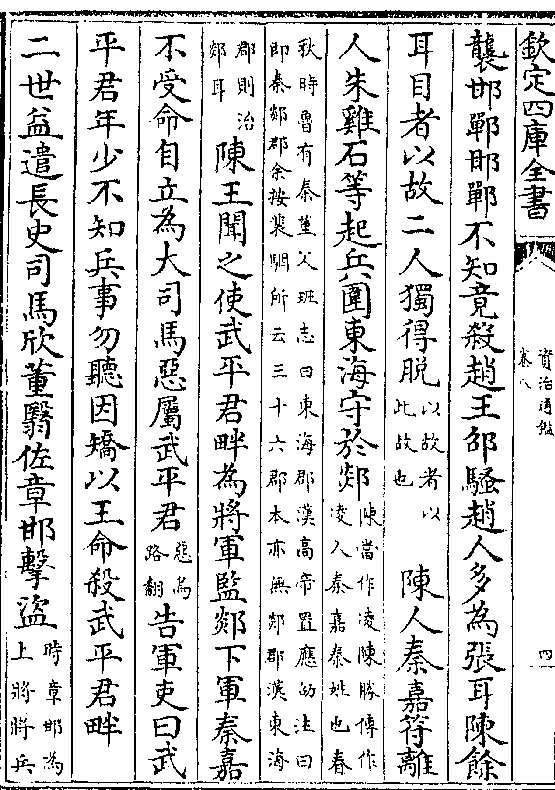 欽定四庫全書
資治通鑑
卷八
四
襲邯鄲邯鄲不知竟殺趙王邵騷趙人多為張耳陳餘
耳目者以故二人獨得脱
以故者以
此故也
陳人秦嘉符離
人朱雞石等起兵圍東海守於郯
陳當作凌陳勝傳作
凌人秦嘉秦姓也春
秋時魯有秦堇父班志曰東海郡漢高帝置應劭注曰
即秦郯郡余按裴駰所云三十六郡本亦無郯郡漢東海
郡則治
郯耳
陳王聞之使武平君畔為將軍監郯下軍秦嘉
不受命自立為大司馬惡屬武平君
惡烏
路翻
告軍吏曰武
平君年少不知兵事勿聽因矯以王命殺武平君畔
二世益遣長史司馬欣董翳佐章邯擊盜
時章邯為
上將將兵